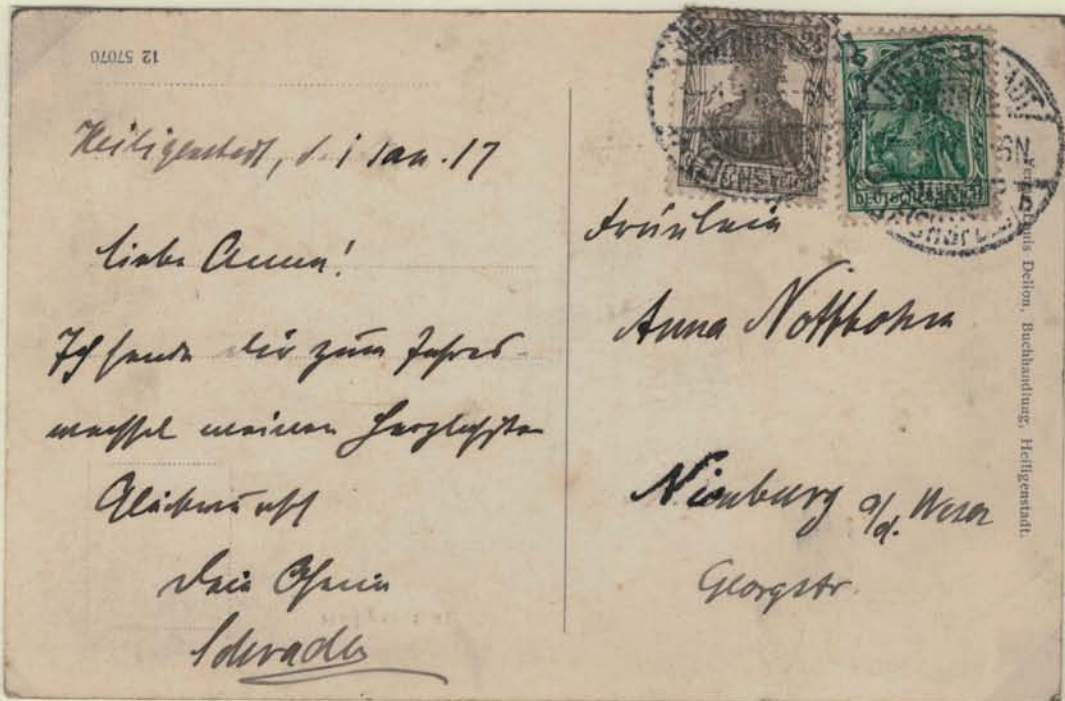 12 57076
Heiligenstadt, d. 1 Jan. 17
Liebe Anna!
Ich sende dir zum Jahres-
wechsel meinen herzlichsten
Glückwunsch
Dein
Fräulein
Anna Nottbohm
Nienburg a/d. Weser
Georgstr.
DEUTSCHES REICH
Louis Dellon, Buchhandlung, Heiligenstadt.